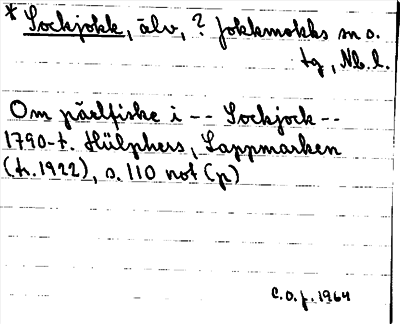 * Sockjokk, älv, ? Jokkmokks sn o.
tg, Nb. l.
Om pärlfiske i -- Sockjock --
1790-t. Hülphers, Lappmarken
(tr. 1922), s. 110 not (p)
C.O.p. 1964